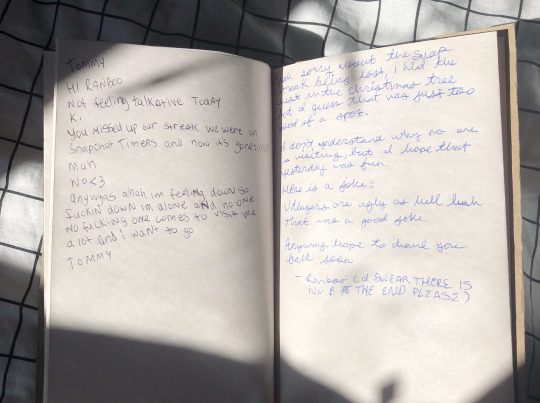 TOMMY
HI RANBOO
Not feeling talkative Today
K.
You missed up our streak we were on
snapchat Timers and now it's gone!!!!!
Man
No<3
anywyas allah im feeling down so
fuckin down im alone and no one
No fucking one comes to visit me
a lot and i want to go
TOMMY
sorry about the snap
streak being lost, i hid the
in the christmas tree
i guess that was just too
good of a spot.
I don't understand why no one
is visiting, but I hope that
yesterday was fun.
Here is a joke:
Villagers are ugly as hell
That was a good joke.
Anyway hope to have you
back soon
- Ranboo (I SWEAR THERE IS
NO B AT THE END PLEASE)